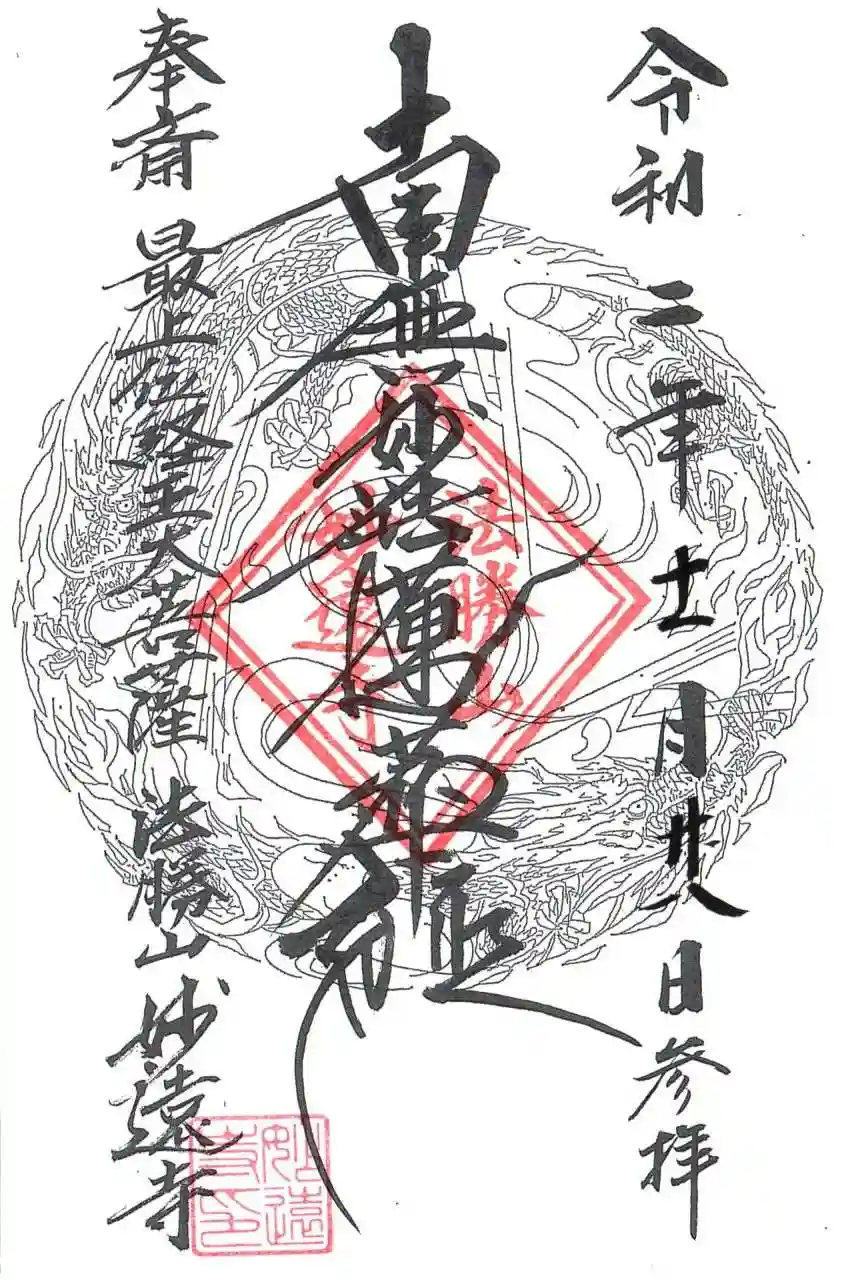 令和二年十一月廿八日参拝
南無妙法蓮華経
法勝山
妙遠寺
奉斎 最上位経王大菩薩 法勝山 妙遠寺
妙遠
寺印